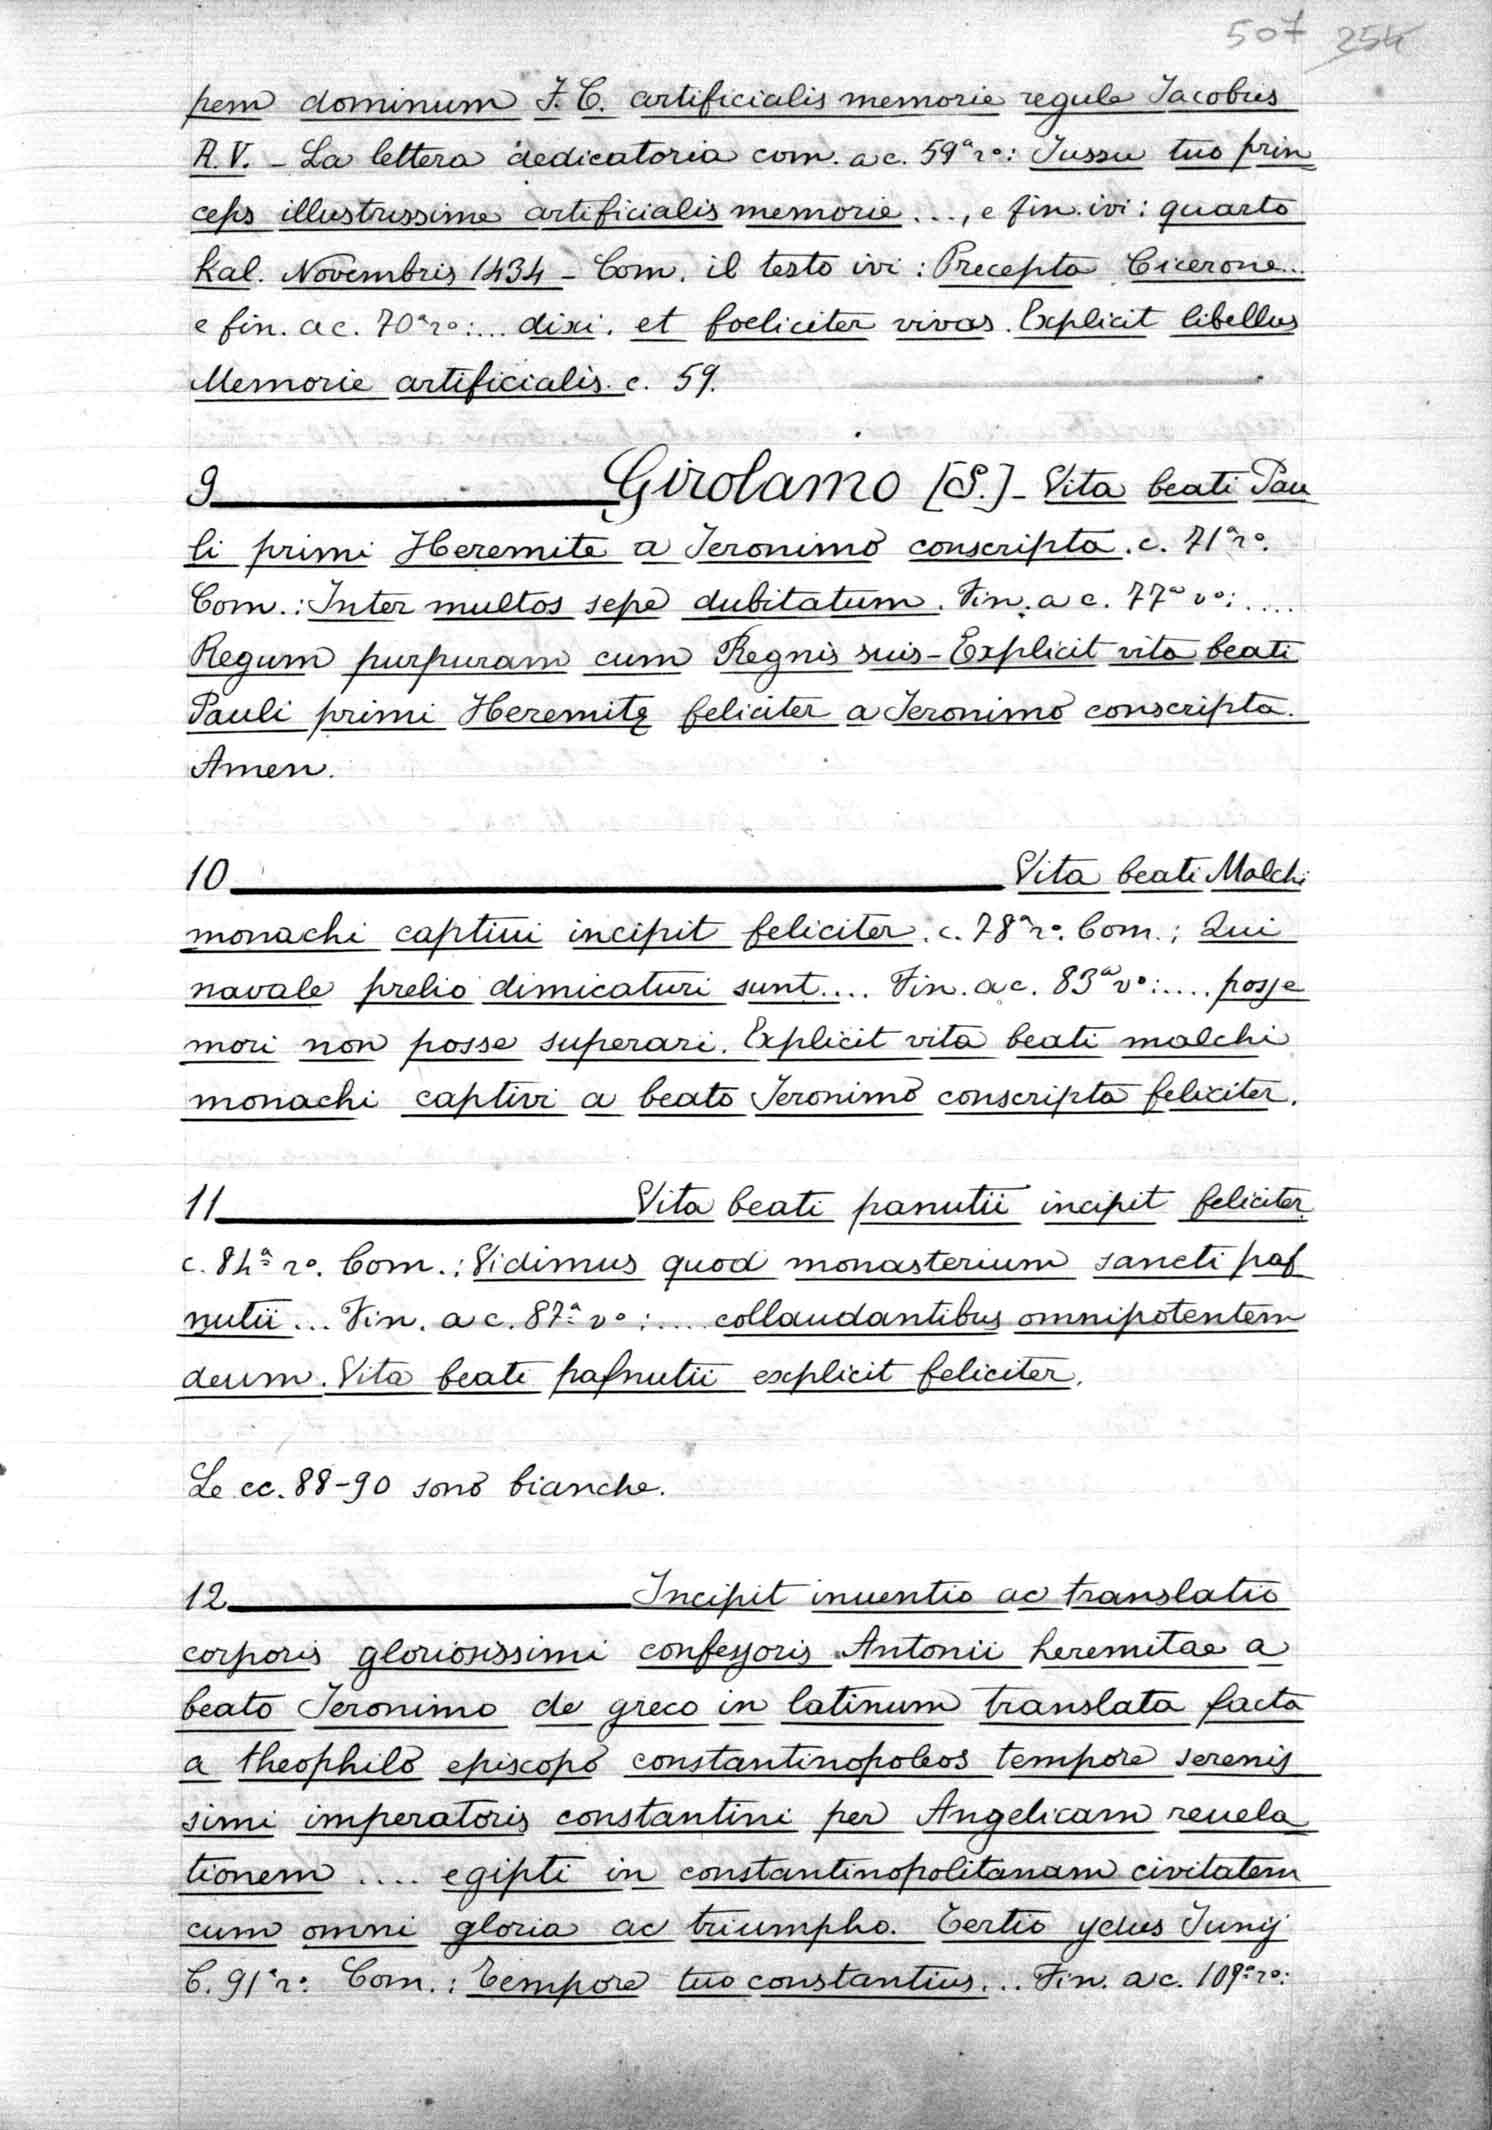 507 254
pem dominum F. C. artificialis memorie regule Jacobus
R. V. - La lettera dedicatoria com. a c. 59ª rº: Jussu tuo prin
ceps illustrissime artificialis memorie..., e fin. ivi: quarto
kal. Novembris 1434 - Com. il testo ivi: Precepta Cicerone...
e fin. a c. 70ª rº:... dixi. et foeliciter vivas. Explicit libellus
Memorie artificialis. c. 59.
9 Girolamo [S.] - Vita beati Pau
li primi Heremite a Jeronimo conscripta. c. 71ª rº.
Com.: Inter multos sepe dubitatum. Fin. a c. 77ª vº:....
Regum purpuram cum Regnis suis - Explicit vita beati
Pauli primi Heremitę feliciter a Jeronimo conscripta.
Amen.
10 Vita beati Malchi
monachi captiui incipit feliciter. c. 78ª rº. Com.: Qui
navale prelio dimicaturi sunt.... Fin. a c. 83ª vº:.... posse
mori non posse superari. Explicit vita beati malchi
monachi captivi a beato Jeronimo conscripta feliciter.
11 Vita beati panutii incipit feliciter
c. 84ª rº. Com.: Vidimus quod monasterium sancti paf
nutii... Fin. a c. 87ª vº:.... collaudantibus omnipotentem
deum. Vita beati pafnutii explicit feliciter.
Le cc. 88-90 sono bianche.
12 Incipit inuentio ac translatio
corporis gloriosissimi confessoris Antonii heremitae a
beato Jeronimo de greco in latinum translata facta
a theophilo episcopo constantinopoleos tempore serenis
simi imperatoris constantini per Angelicam reuela
tionem .... egipti in constantinopolitanam civitatem
cum omni gloria ac triumpho. Tertio ydus Junij
C. 91ª rº. Com.: Tempore tuo constantius... Fin. a c. 109ª rº: